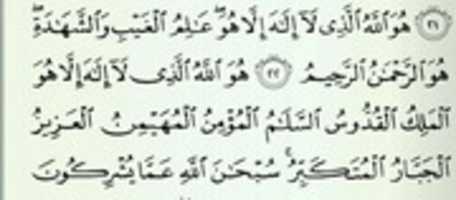 ٢١ هُوَ ٱللَّهُ ٱلَّذِى لَآ إِلَـٰهَ إِلَّا هُوَ ۖ عَـٰلِمُ ٱلْغَيْبِ وَٱلشَّهَـٰدَةِ ۖ
هُوَ ٱلرَّحْمَـٰنُ ٱلرَّحِيمُ ٢٢ هُوَ ٱللَّهُ ٱلَّذِى لَآ إِلَـٰهَ إِلَّا هُوَ
ٱلْمَلِكُ ٱلْقُدُّوسُ ٱلسَّلَـٰمُ ٱلْمُؤْمِنُ ٱلْمُهَيْمِنُ ٱلْعَزِيزُ
ٱلْجَبَّارُ ٱلْمُتَكَبِّرُ ۚ سُبْحَـٰنَ ٱللَّهِ عَمَّا يُشْرِكُونَ